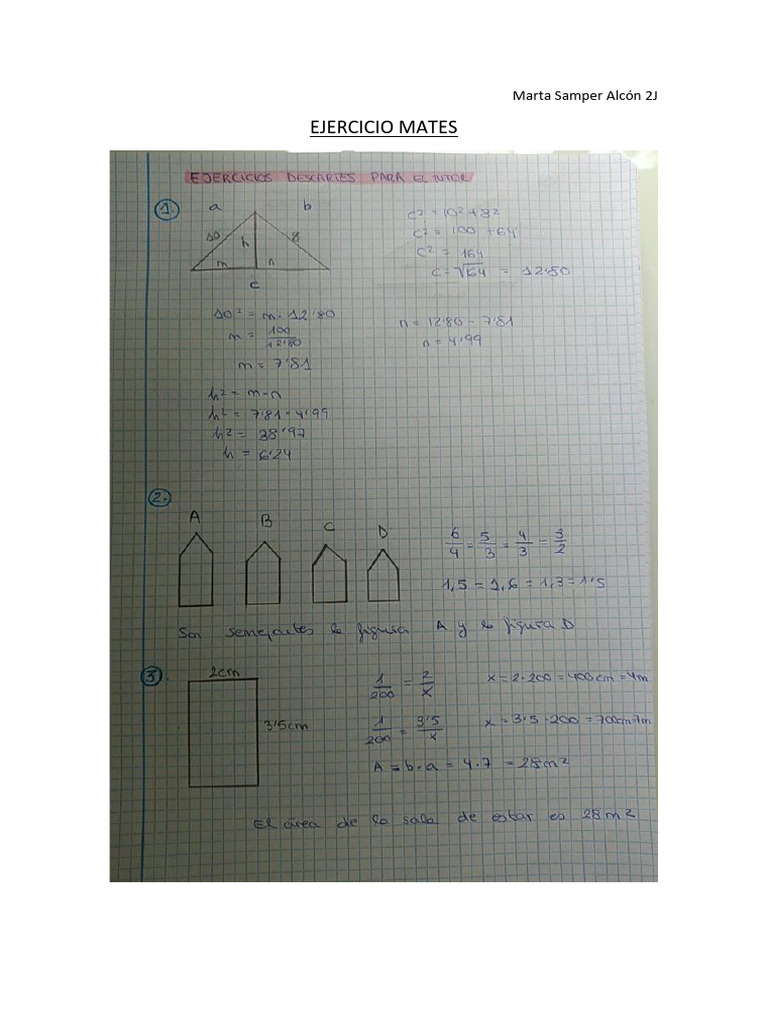 Marta Samper Alcón 2J
EJERCICIO MATES
EJERCICIOS DESCARTES PARA EL TUTOR
1.
a b
10 h 8
m n
c
c² = 10² + 8²
c² = 100 + 64
c² = 164
c = √164 = 12'80
10² = m · 12'80
m = 100/12'80
m = 7'81
n = 12'80 - 7'81
n = 4'99
h² = m · n
h² = 7'81 · 4'99
h² = 38'97
h = 6'24
2.
A B C D
6/4 = 5/3 = 4/3 = 3/2
1,5 = 1,6 = 1,3 = 1'5
Son semejantes la figura A y la figura D
3.
2cm
3'5cm
1/200 = 2/x x = 2 · 200 = 400cm = 4m
1/200 = 3'5/x x = 3'5 · 200 = 700cm=7m
A = b · a = 4 · 7 = 28m²
El área de la sala de estar es 28m²